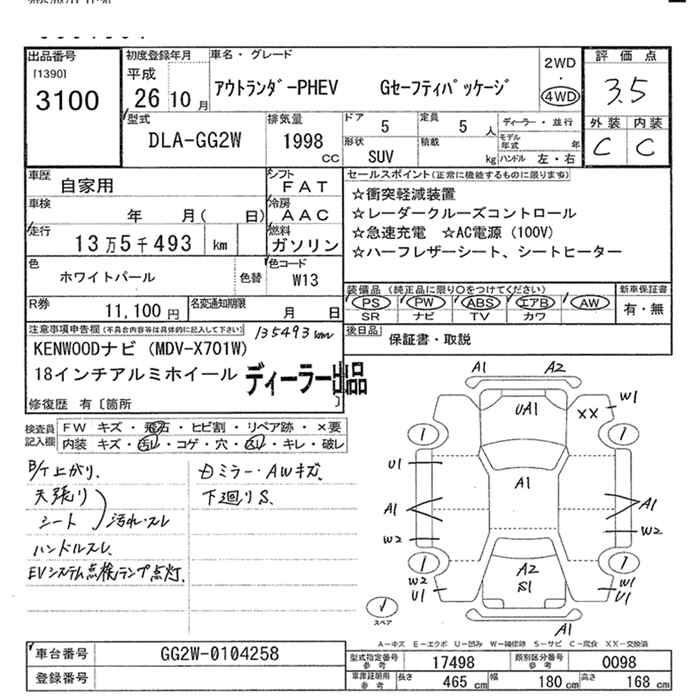 出品番号
[1390]
3100
初度登録年月
平成
26 10 月
車名・グレード
アウトランダｰPHEV Gセーフティパッケージ
2WD
・
4WD
評価点
3.5
外装 内装
C C
型式
DLA-GG2W
排気量
1998
CC
ドア
5
定員
5 人
形状
SUV
積載
kg
ディーラー・並行
モデル年式 年
ハンドル 左・右
車歴
自家用
シフト
FAT
車検
年 月( 日)
冷房
AAC
走行
13万5千493 km
燃料
ガソリン
色
ホワイトパール
色替
色コード
W13
R券
11,100円
名変通知期限
月 日
セールスポイント(正常に機能するものに限ります)
☆衝突軽減装置
☆レーダークルーズコントロール
☆急速充電 ☆AC電源(100V)
☆ハーフレザーシート、シートヒーター
装備品(純正品に限り○をつけてください)
PS PW ABS エアB AW
SR ナビ TV カワ
新車保証書
有・無
後日品
保証書・取説
注意事項申告欄(不具合内容等は具体的に記入して下さい)
135493km
KENWOODナビ(MDV-X701W)
18インチアルミホイール
ディーラー出品
修復歴 有〔箇所 〕
検査員記入欄
FW キズ・飛石・ヒビ割・リペア跡・×要
内装 キズ・汚れ・コゲ・穴・スレ・キレ・破レ
B/T上がり.
天張り
シート
汚れ・スレ
ハンドルスレ.
EVシステム点検ランプ点灯.
Dミラー・AWキズ.
下廻りS.
A1 A2
UA1
XX
W1
1 1
U1
A1
A1 A1
W2 W2
1 1
W2
U1
A2
S1
W1
U1
A1
1
スペア
A－キズ E－エクボ U－凹み W－補修跡 S－サビ C－腐食 XX－交換済
車台番号
GG2W-0104258
登録番号
型式指定番号
参考
17498
類別区分番号
参考
0098
車庫証明用
参考
長さ
465 cm
幅
180 cm
高さ
168 cm